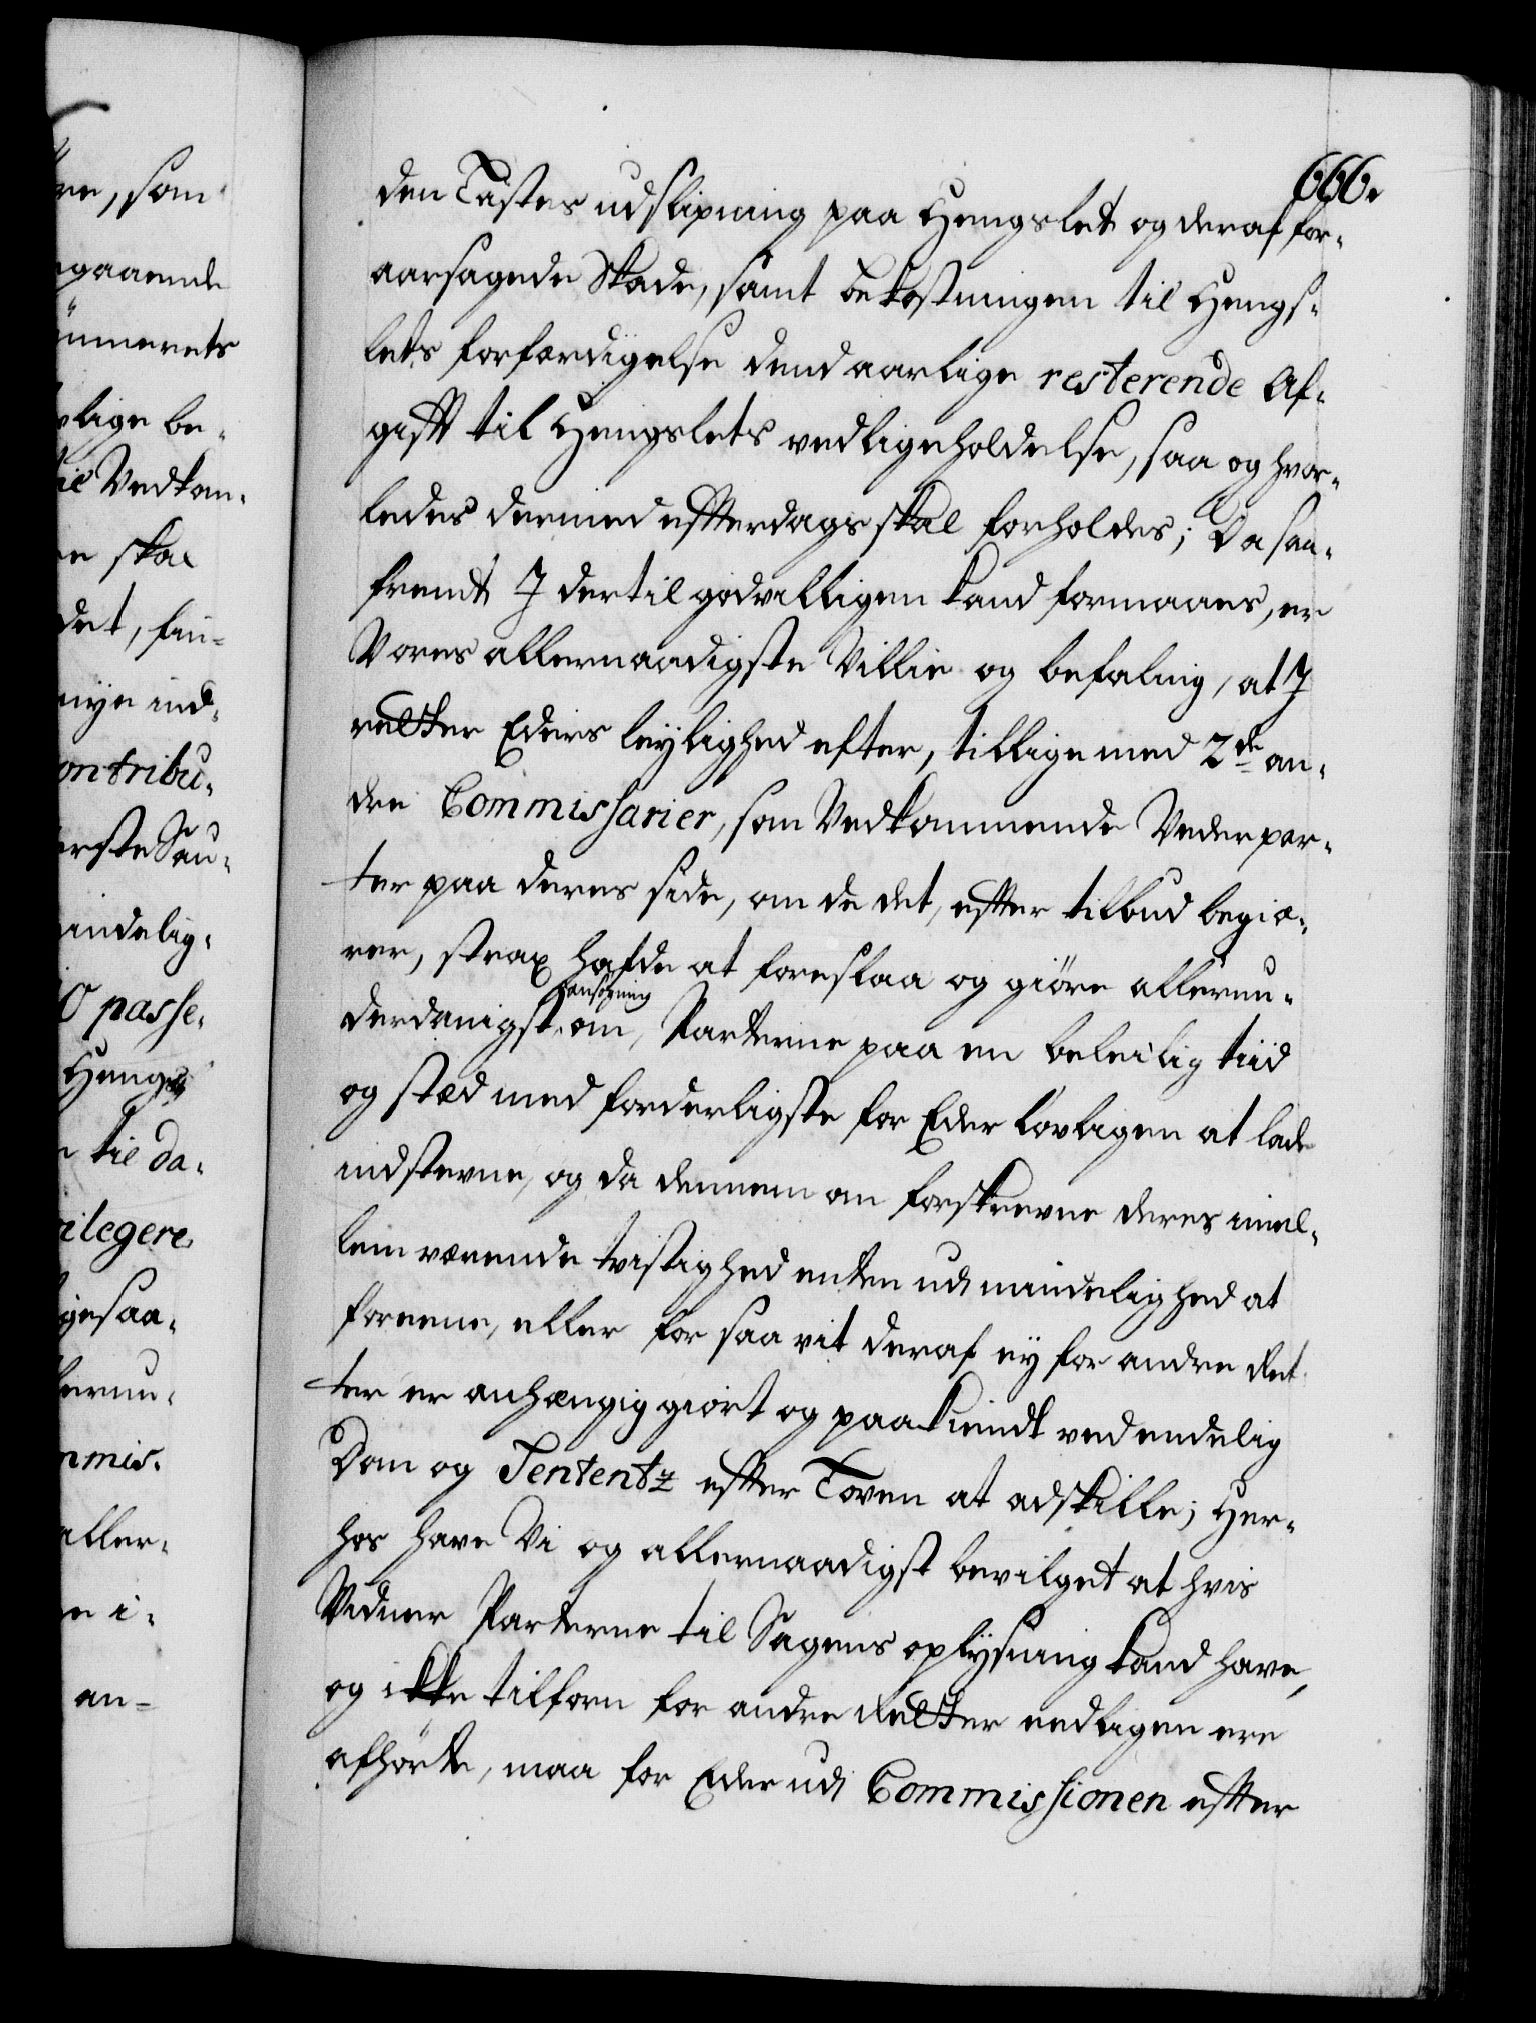 666.
den Tastes udslipning paa Hengslet og deraf for-
aarsagede Skade, samt bekostningen til Hengs-
lets forfærdigelse dend aarlige resterende Af-
gifft til Hengslets vedligeholdelse, saa og hvor-
ledes dermed effterdags skal forholdes; Da saa-
fremt I dertil godvilligen kand formaaes, er
Vores allernaadigste Villie og befaling, at I
retter Eders leylighed efter, tillige med 2de an-
dre Commissarier, som Vedkommende Vederpar-
ter paa deres side, om de det, effter tilbud begiæ-
rer, strax hafde at foreslaa og giöre allerun-
derdanigst ansögning om, Parterne paa en beleilig tiid
og stæd med forderligste for Eder lovligen at lade
indstevne, og da dennem om forskrevne deres imel-
lem værende tvistighed enten udi mindelighed at
foreene, eller for saa vit deraf ey for andre Ret-
ter er anhængig giort og paakiendt ved endelig
Dom og Sententz effter Loven at adskille; Her-
hos have Vi og allernaadigst bevilget at hvis
Vidner Parterne til Sagens oplysning kand have,
og ikke tilforn for andre Retter eedligen ere
afhörte, maa for Eder udi Commissionen effter
re, som
gaaende
ümerets
lige be-
til Vedkom-
e skal
det, fin-
nye ind-
ontribu-
erste Sau-
indelig-
passe-
Hengs
til da-
ilegere
gesaa-
erun-
mmis-
aller-
e i-
an-